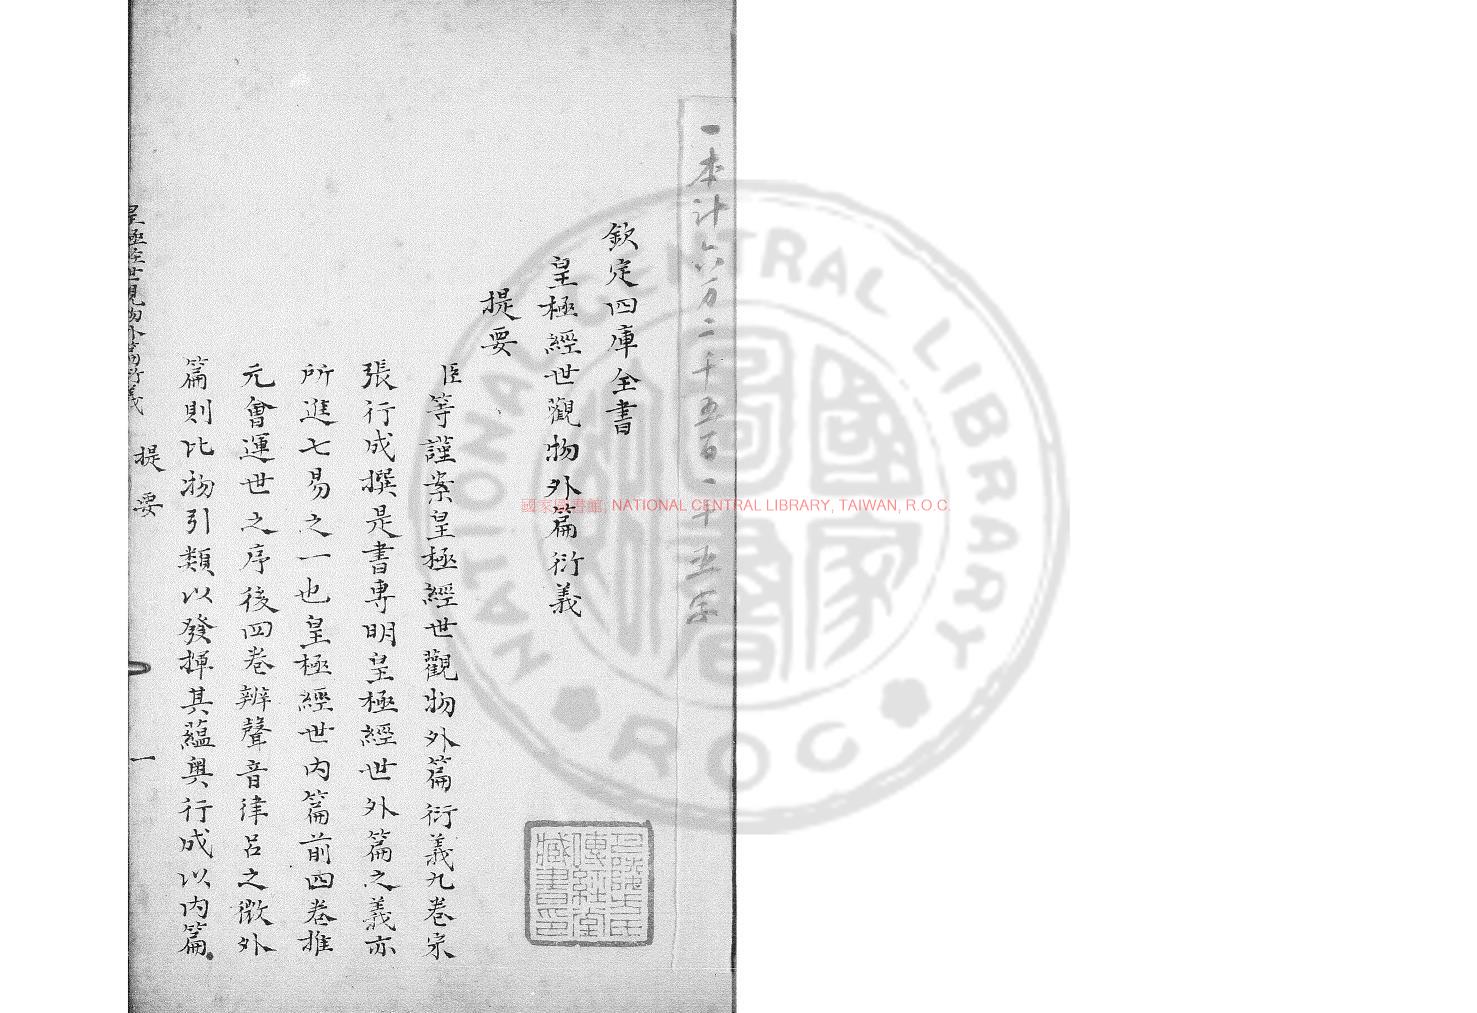 一本計六万二千五百一十五字
欽定四庫全書
皇極經世觀物外篇衍義
提要
臣等謹案皇極經世觀物外篇衍義九卷宋
張行成撰是書專明皇極經世外篇之義亦
所進七易之一也皇極經世内篇前四卷推
元會運世之序後四卷辨聲音律呂之微外
篇則比物引類以發揮其蘊奥行成以内篇
皇極經世觀物外篇衍義
提要
一
國家圖書館, NATIONAL CENTRAL LIBRARY, TAIWAN, R.O.C.
NATIONAL CENTRAL LIBRARY
ROC